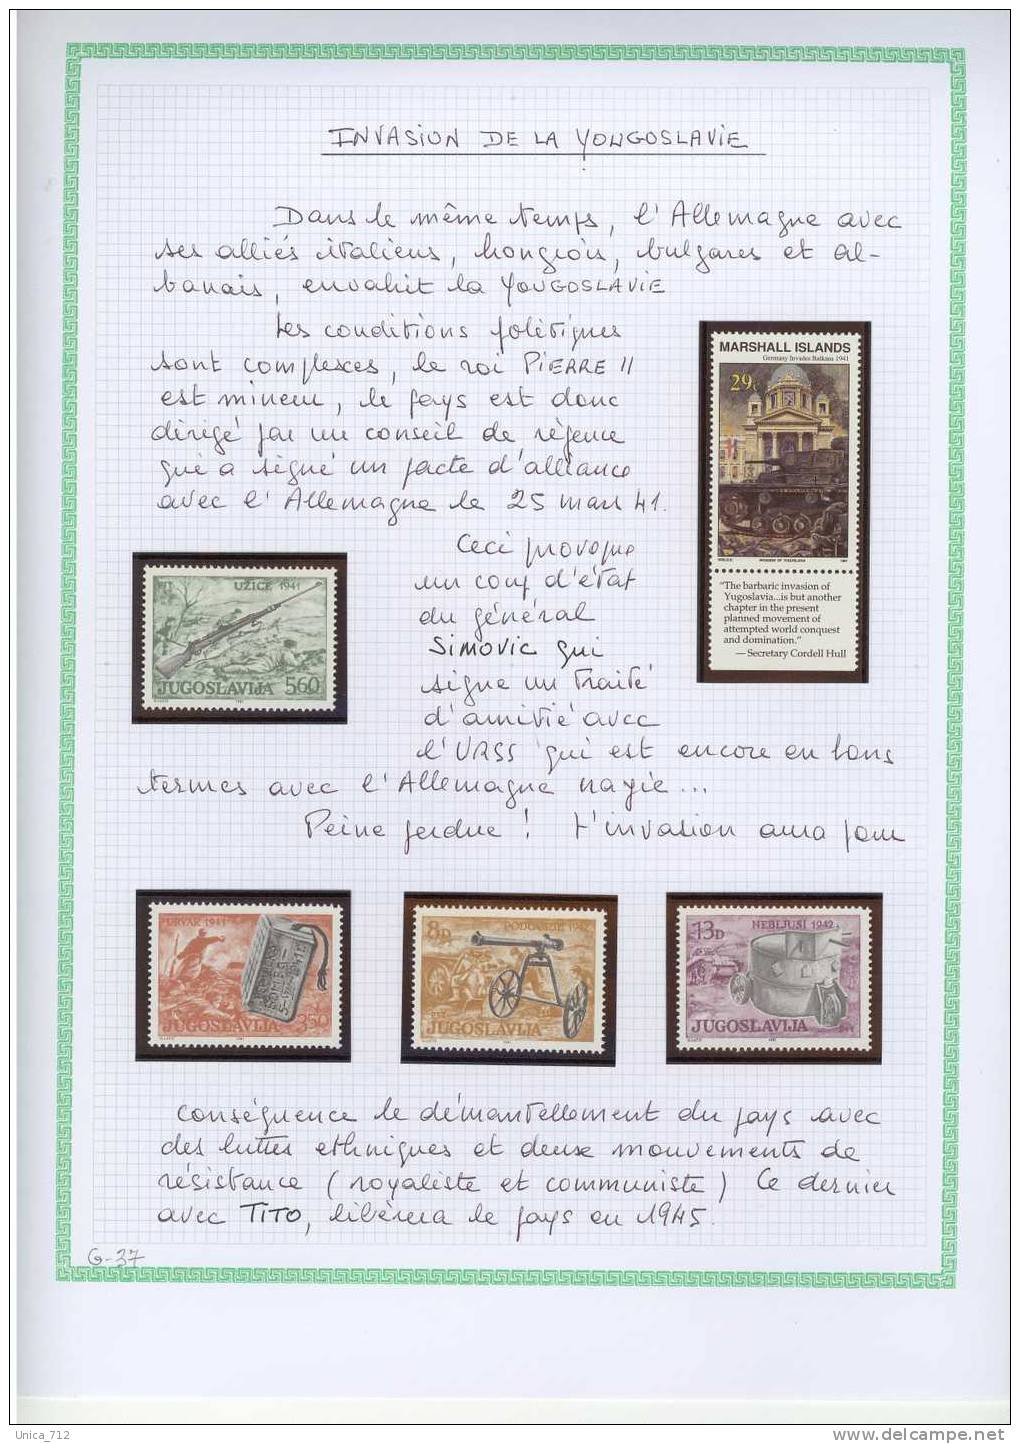 INVASION DE LA YOUGOSLAVIE
Dans le même temps, l'Allemagne avec
ses alliés italiens, hongrois, bulgares et al-
banais, envahit la YOUGOSLAVIE
Les conditions politiques
sont complexes, le roi PIERRE II
est mineur, le pays est donc
dirigé par un conseil de régence
qui a signé un pacte d'alliance
avec l'Allemagne le 25 mars 41.
MARSHALL ISLANDS
Germany Invades Balkans 1941
29c
"The barbaric invasion of
Yugoslavia...is but another
chapter in the present
planned movement of
attempted world conquest
and domination."
— Secretary Cordell Hull
Ceci provoque
un coup d'état
du général
SIMOVIC qui
signe un traité
d'amitié avec
l'URSS qui est encore en bons
termes avec l'Allemagne nazie...
PTT UŽICE 1941
JUGOSLAVIJA 5.60
Peine perdue ! L'invasion aura pour
DRVAR 1941
JUGOSLAVIJA 3.50
8D PODGRMEČ 1942
JUGOSLAVIJA
13D NEBLJUSI 1942
JUGOSLAVIJA
conséquence le démantellement du pays avec
des luttes ethniques et deux mouvements de
résistance (royaliste et communiste) Ce dernier
avec TITO, libèrera le pays en 1945.
G-37
Unica_712
www.delcampe.net